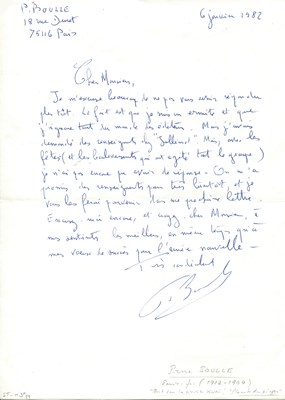 P. BOULLE
18 rue Duret
75116 Paris
6 janvier 1982
Cher Monsieur,
Je m'excuse beaucoup de ne pas vous avoir répondu
plus tôt. Le fait est que je suis un ermite et que
j'ignore tout du monde des éditeurs. Mais j'avais
demandé des renseignements chez "Julliard". Mais, avec les
fêtes (et les bouleversements qui ont agité tout le groupe)
je n'ai pas encore pu avoir de réponse. On m'a
promis des renseignements pour très bientôt, et je
vous les ferai parvenir dans une prochaine lettre.
Excusez-moi encore, et croyez, cher Monsieur, à
mes sentiments les meilleurs, en même temps qu'à
mes vœux de succès pour l'année nouvelle -
Très cordialement
P. Boulle
Pierre BOULLE